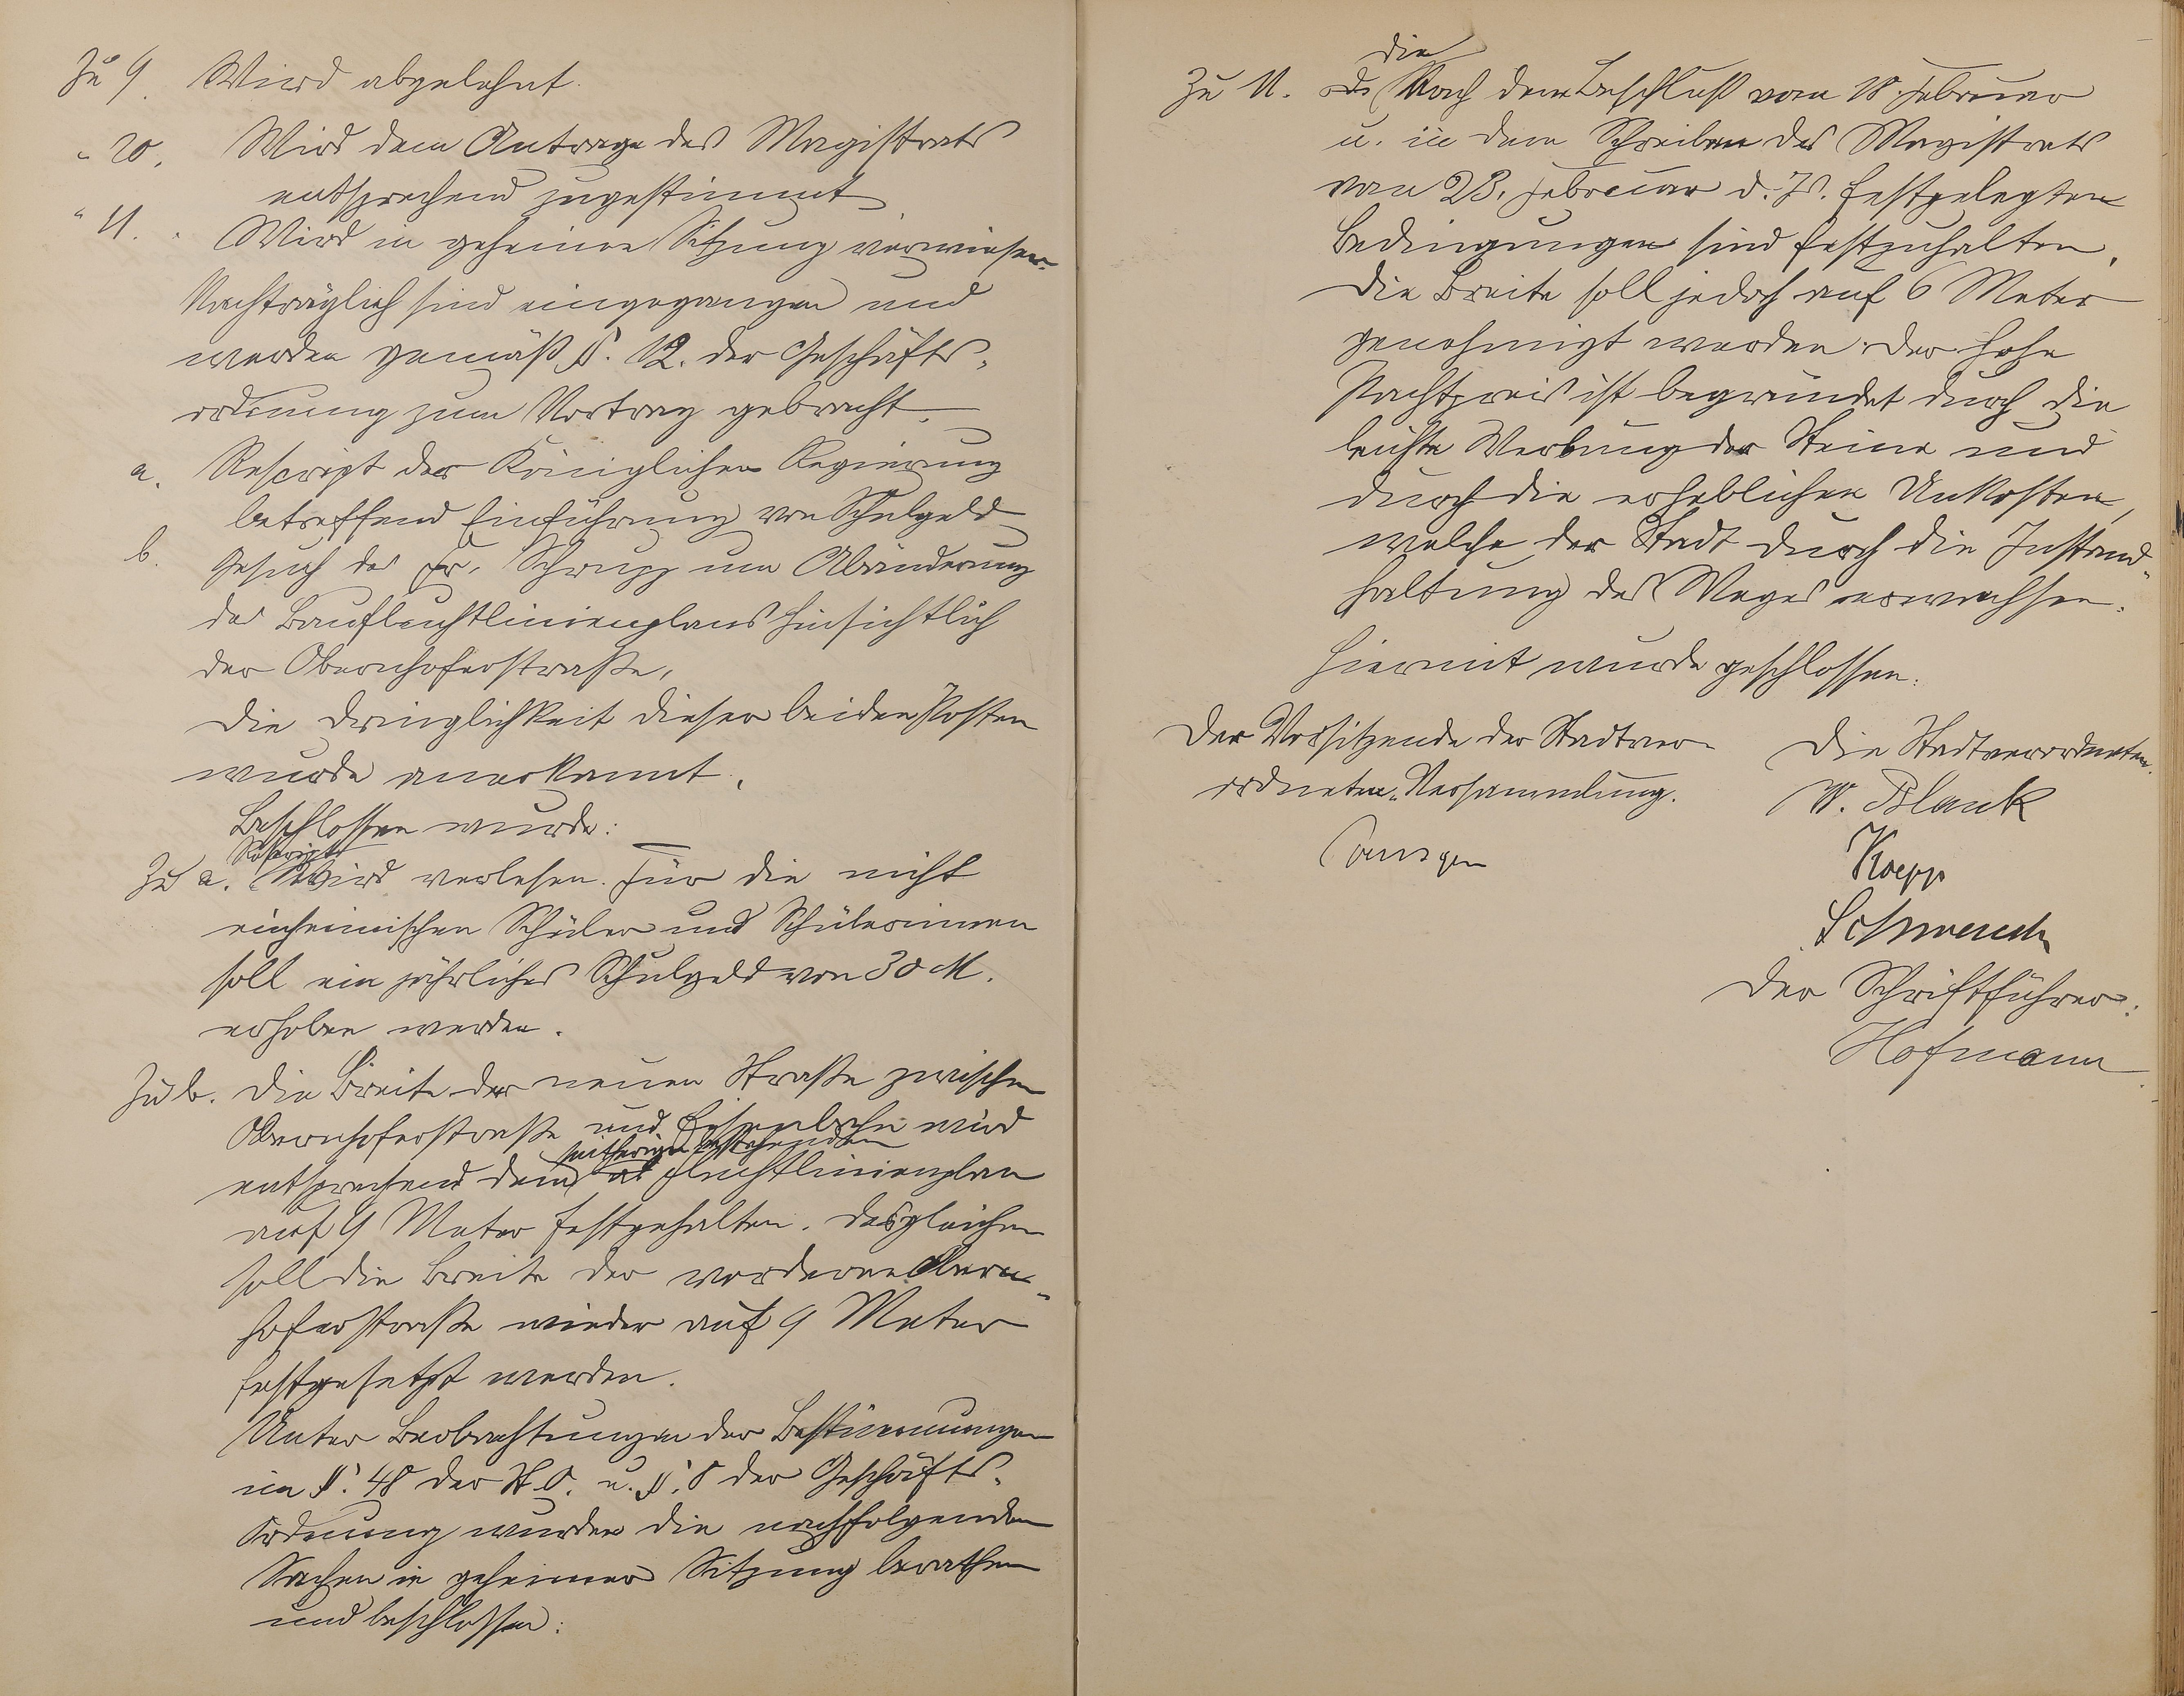 Zu 9. Wird abgelehnt.
" 10. Wird dem Antrage des Magistrats
entsprechend zugestimmt
" 11. Wird in geheime Sitzung verwiesen.
Nachträglich sind eingegangen und
werden gemäß §. 12. der Geschäfts-
ordnung zum Vortrag gebracht.
a. Rescript der Königlichen Regierung
betreffend Einführung von Schulgeld
b. Gesuch des Fr. Schrupp um Abänderung
des Baufluchtlinienplans hinsichtlich
der Obernhoferstraße.
Die Dringlichkeit dieser beiden Posten
wurde anerkannt.
Beschlossen wurde:
Rescript
Zu a. Wird verlesen. Für die nicht
einheimischen Schüler und Schülerinnen
soll ein jährliches Schulgeld von 30 M.
erhoben werden.
Zu b. Die Breite der neuen Straße zwischen
Obernhoferstraße und Eisenbahn wird
seitherigen bestehenden
entsprechend dem Fluchtlinienplan
auf 9 Meter festgehalten. Desgleichen
soll die Breite der vorderen Obern-
hoferstraße wieder auf 9 Meter
festgesetzt werden.
Unter Beobachtungen der Bestimmungen
im §. 48 der St. O. u. §. 8 der Geschäfts-
Ordnung wurden die nachfolgenden
Sachen in geheimer Sitzung berathen
und beschlossen:
die
Zu 11. Nach dem Beschluß vom 18. Februar
u. in dem Schreiben des Magistrats
vom 23. Februar d. Js. festgelegten
Bedingungen sind festzuhalten.
Die Breite soll jedoch auf 6 Meter
genehmigt werden. Der hohe
Pachtpreis ist begründet durch die
leichte Werbung der Steine und
durch die erheblichen Unkosten,
welche der Stadt durch die Instand-
haltung des Weges erwachsen.
Hiermit wurde geschlossen.
Der Vorsitzende der Stadtver-
ordneten-Versammlung.
Die Stadtverordneten.
W. Blank
Koepp
Der Schriftführer:
Hofmann